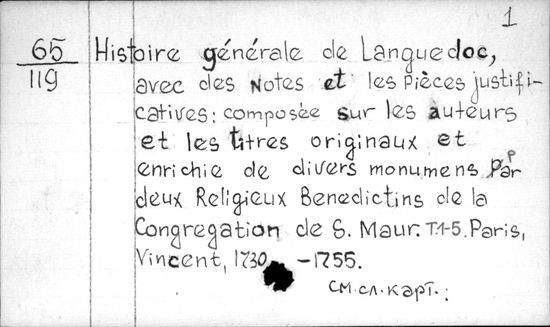 1
65 Histoire générale de Languedoc,
119 avec des Notes et les Pièces justifi-
catives: composée sur les auteurs
et les titres originaux et
enrichie de divers monumens par
deux Religieux Benedictins de la
Congregation de S. Maur. T.1-5. Paris,
Vincent, 1730 -1755.
см.сл.карт.: